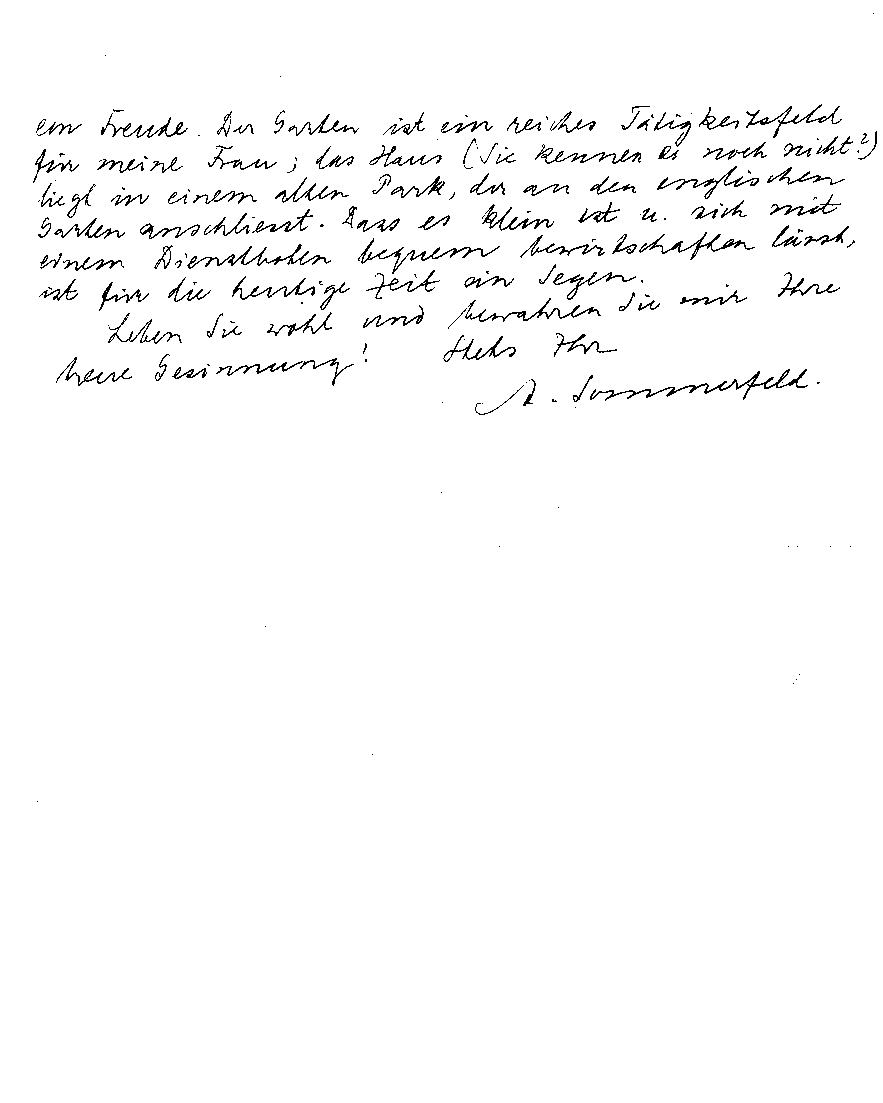 ein Freude. Der Garten ist ein reiches Tätigkeitsfeld
für meine Frau; das Haus (Sie kennen es noch nicht?)
liegt in einem alten Park, der an den englischen
Garten anschliesst. Dass es klein ist u. sich mit
einem Dienstboten bequem bewirtschaften lässt,
ist für die heutige Zeit ein Segen.
Leben Sie wohl und bewahren Sie mir Ihre
treue Gesinnung! Stets Ihr
A. Sommerfeld.